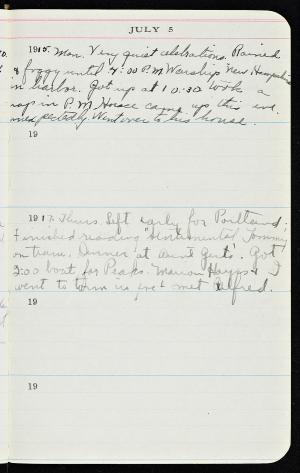 JULY 5
1915. Mon. Very quiet celebrations. Rained
& foggy until 4:00 P.M. Warship New Hampshire
in harbor. Got up at 10:30 Took a
nap in P.M. Horace came up this eve.
unexpectedly. Went over to his house.
19
1917. Thurs. Left early for Portland;
Finished reading "Sentimental Tommy
on train. Dinner at Aunt Gert's. Got
3:00 boat for Peaks. Marion Hayes & I
went to town in eve & met Alfred.
19
19